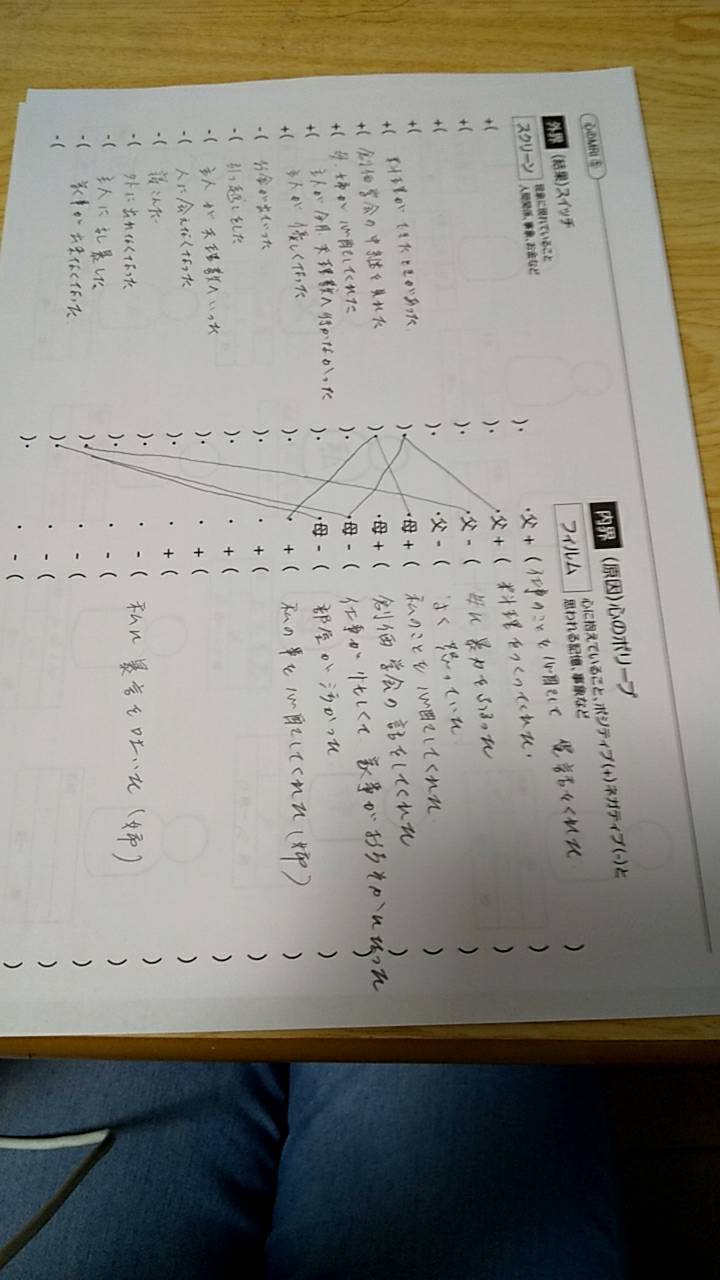 心のMRI ⑤
外界 (結果)スイッチ
スクリーン 現象に現れていること
人間関係、事象、お金など
+(
+(
+(
+( 料理ができたときがあった )・
+( 創価学会の中継を見れた )・
+( 母、姉が心配してくれた )・
+( 主人が毎月、料理教へ行かなかった
+( 主人が優しくなった )・
-( お金が出ていった )・
-( 引っ越しをした )・
-( 主人が 料理教へいった )・
-( 人に会えなくなった )・
-( 詰んだ )・
-( 外に出れなくなった )・
-( 主人に乱暴した )・
-( 家事が出来なくなった )・
内界 (原因)心のポリープ
フィルム 心に抱えていること、ポジティブ(+)ネガティブ(-)と
思われる記憶、事象など
・父 + ( 仕事のことを心配して 電話をくれた )
・父 + ( 料理をつくってくれた )
・父 - ( 母に暴力をふるった )
・父 - ( よく怒っていた )
・母 + ( 私のことを心配してくれた )
・母 + ( 創価学会の話をしてくれた )
・母 - ( 仕事が忙しくて 家事がおろそかになった )
・母 - ( 部屋が汚かった )
・ + ( 私の事を心配してくれた (姉) )
・ + ( )
・ + ( )
・ + ( )
・ + ( )
・ - ( 私に暴言を吐いた (姉) )
・ - ( )
・ - ( )
・ - ( )
・ - ( )